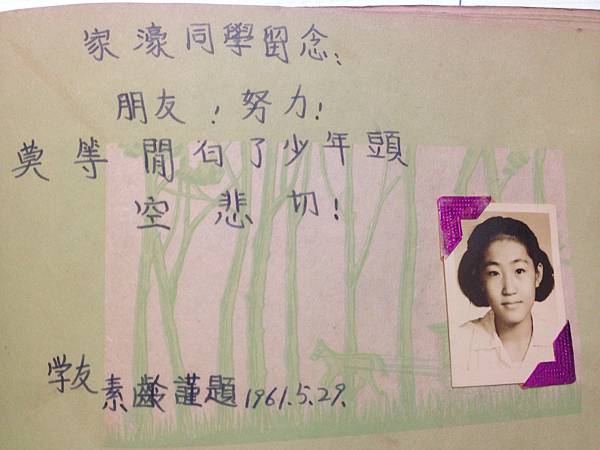 家濠同學留念：
朋友！努力！
莫等閒白了少年頭
空悲切！
学友素齡謹題1961.5.29.